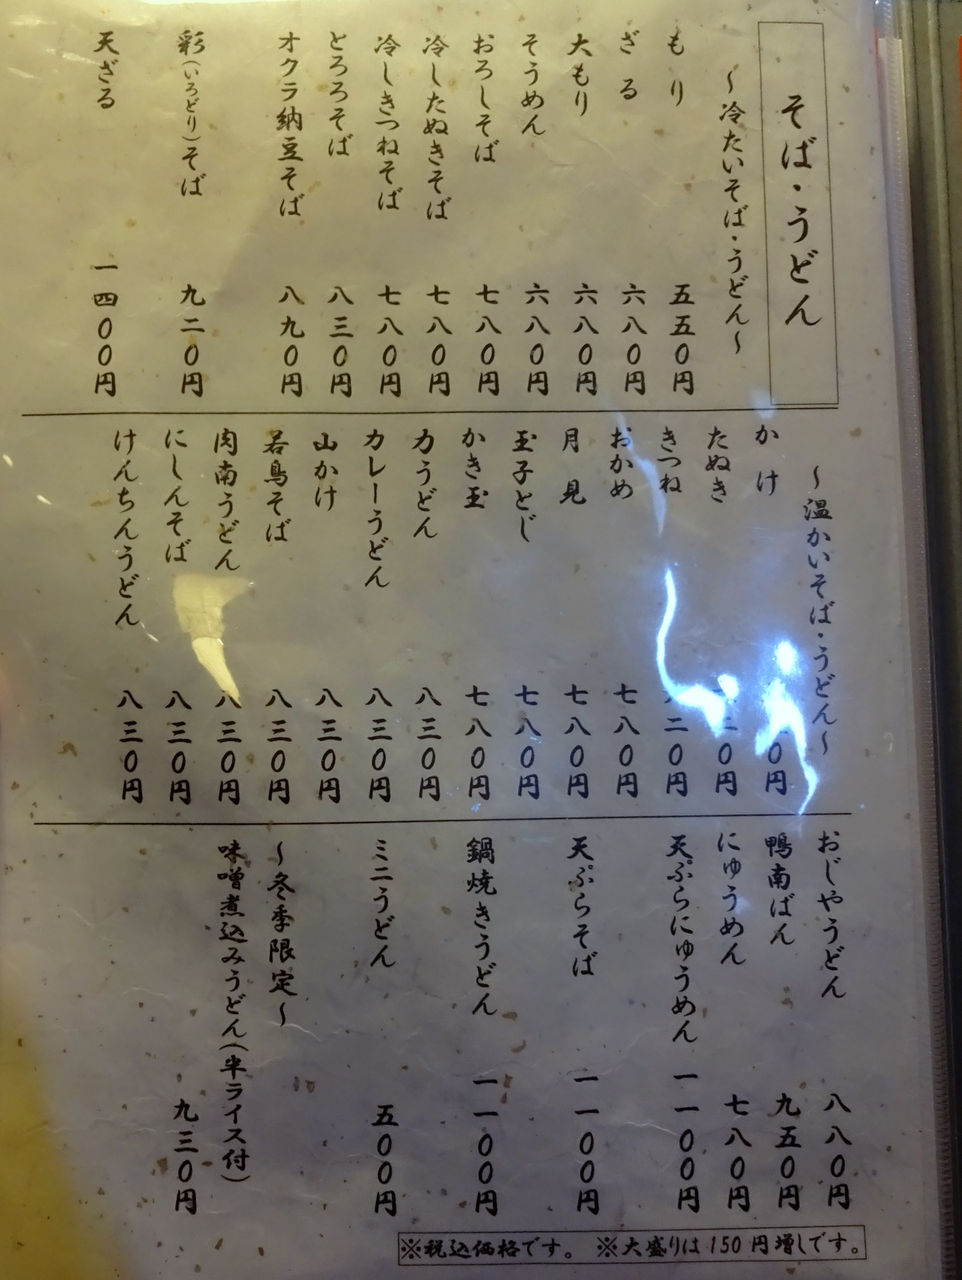 そば・うどん
～冷たいそば・うどん～
もり 五五０円
ざる 六八０円
大もり 六八０円
そうめん 六八０円
おろしそば 七八０円
冷したぬきそば 七八０円
冷しきつねそば 七八０円
とろろそば 八三０円
オクラ納豆そば 八九０円
彩(いろどり)そば 九二０円
天ざる 一四００円
～温かいそば・うどん～
かけ ０円
たぬき ０円
きつね 二０円
おかめ 七八０円
月見 七八０円
玉子とじ 七八０円
かき玉 七八０円
力うどん 八三０円
カレーうどん 八三０円
山かけ 八三０円
若鳥そば 八三０円
肉南うどん 八三０円
にしんそば 八三０円
けんちんうどん 八三０円
おじやうどん 八八０円
鴨南ばん 九五０円
にゅうめん 七八０円
天ぷらにゅうめん 一一００円
天ぷらそば 一一００円
鍋焼きうどん 一一００円
ミニうどん 五００円
～冬季限定～
味噌煮込みうどん(半ライス付)
九三０円
※税込価格です。 ※大盛りは150円増しです。